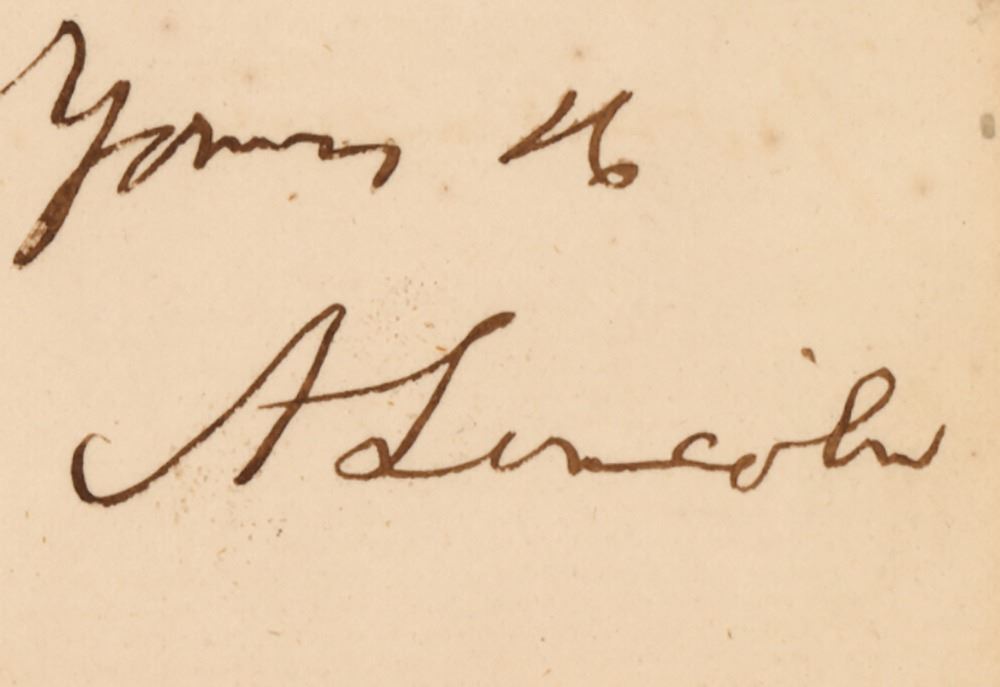 Yours &c
A. Lincoln